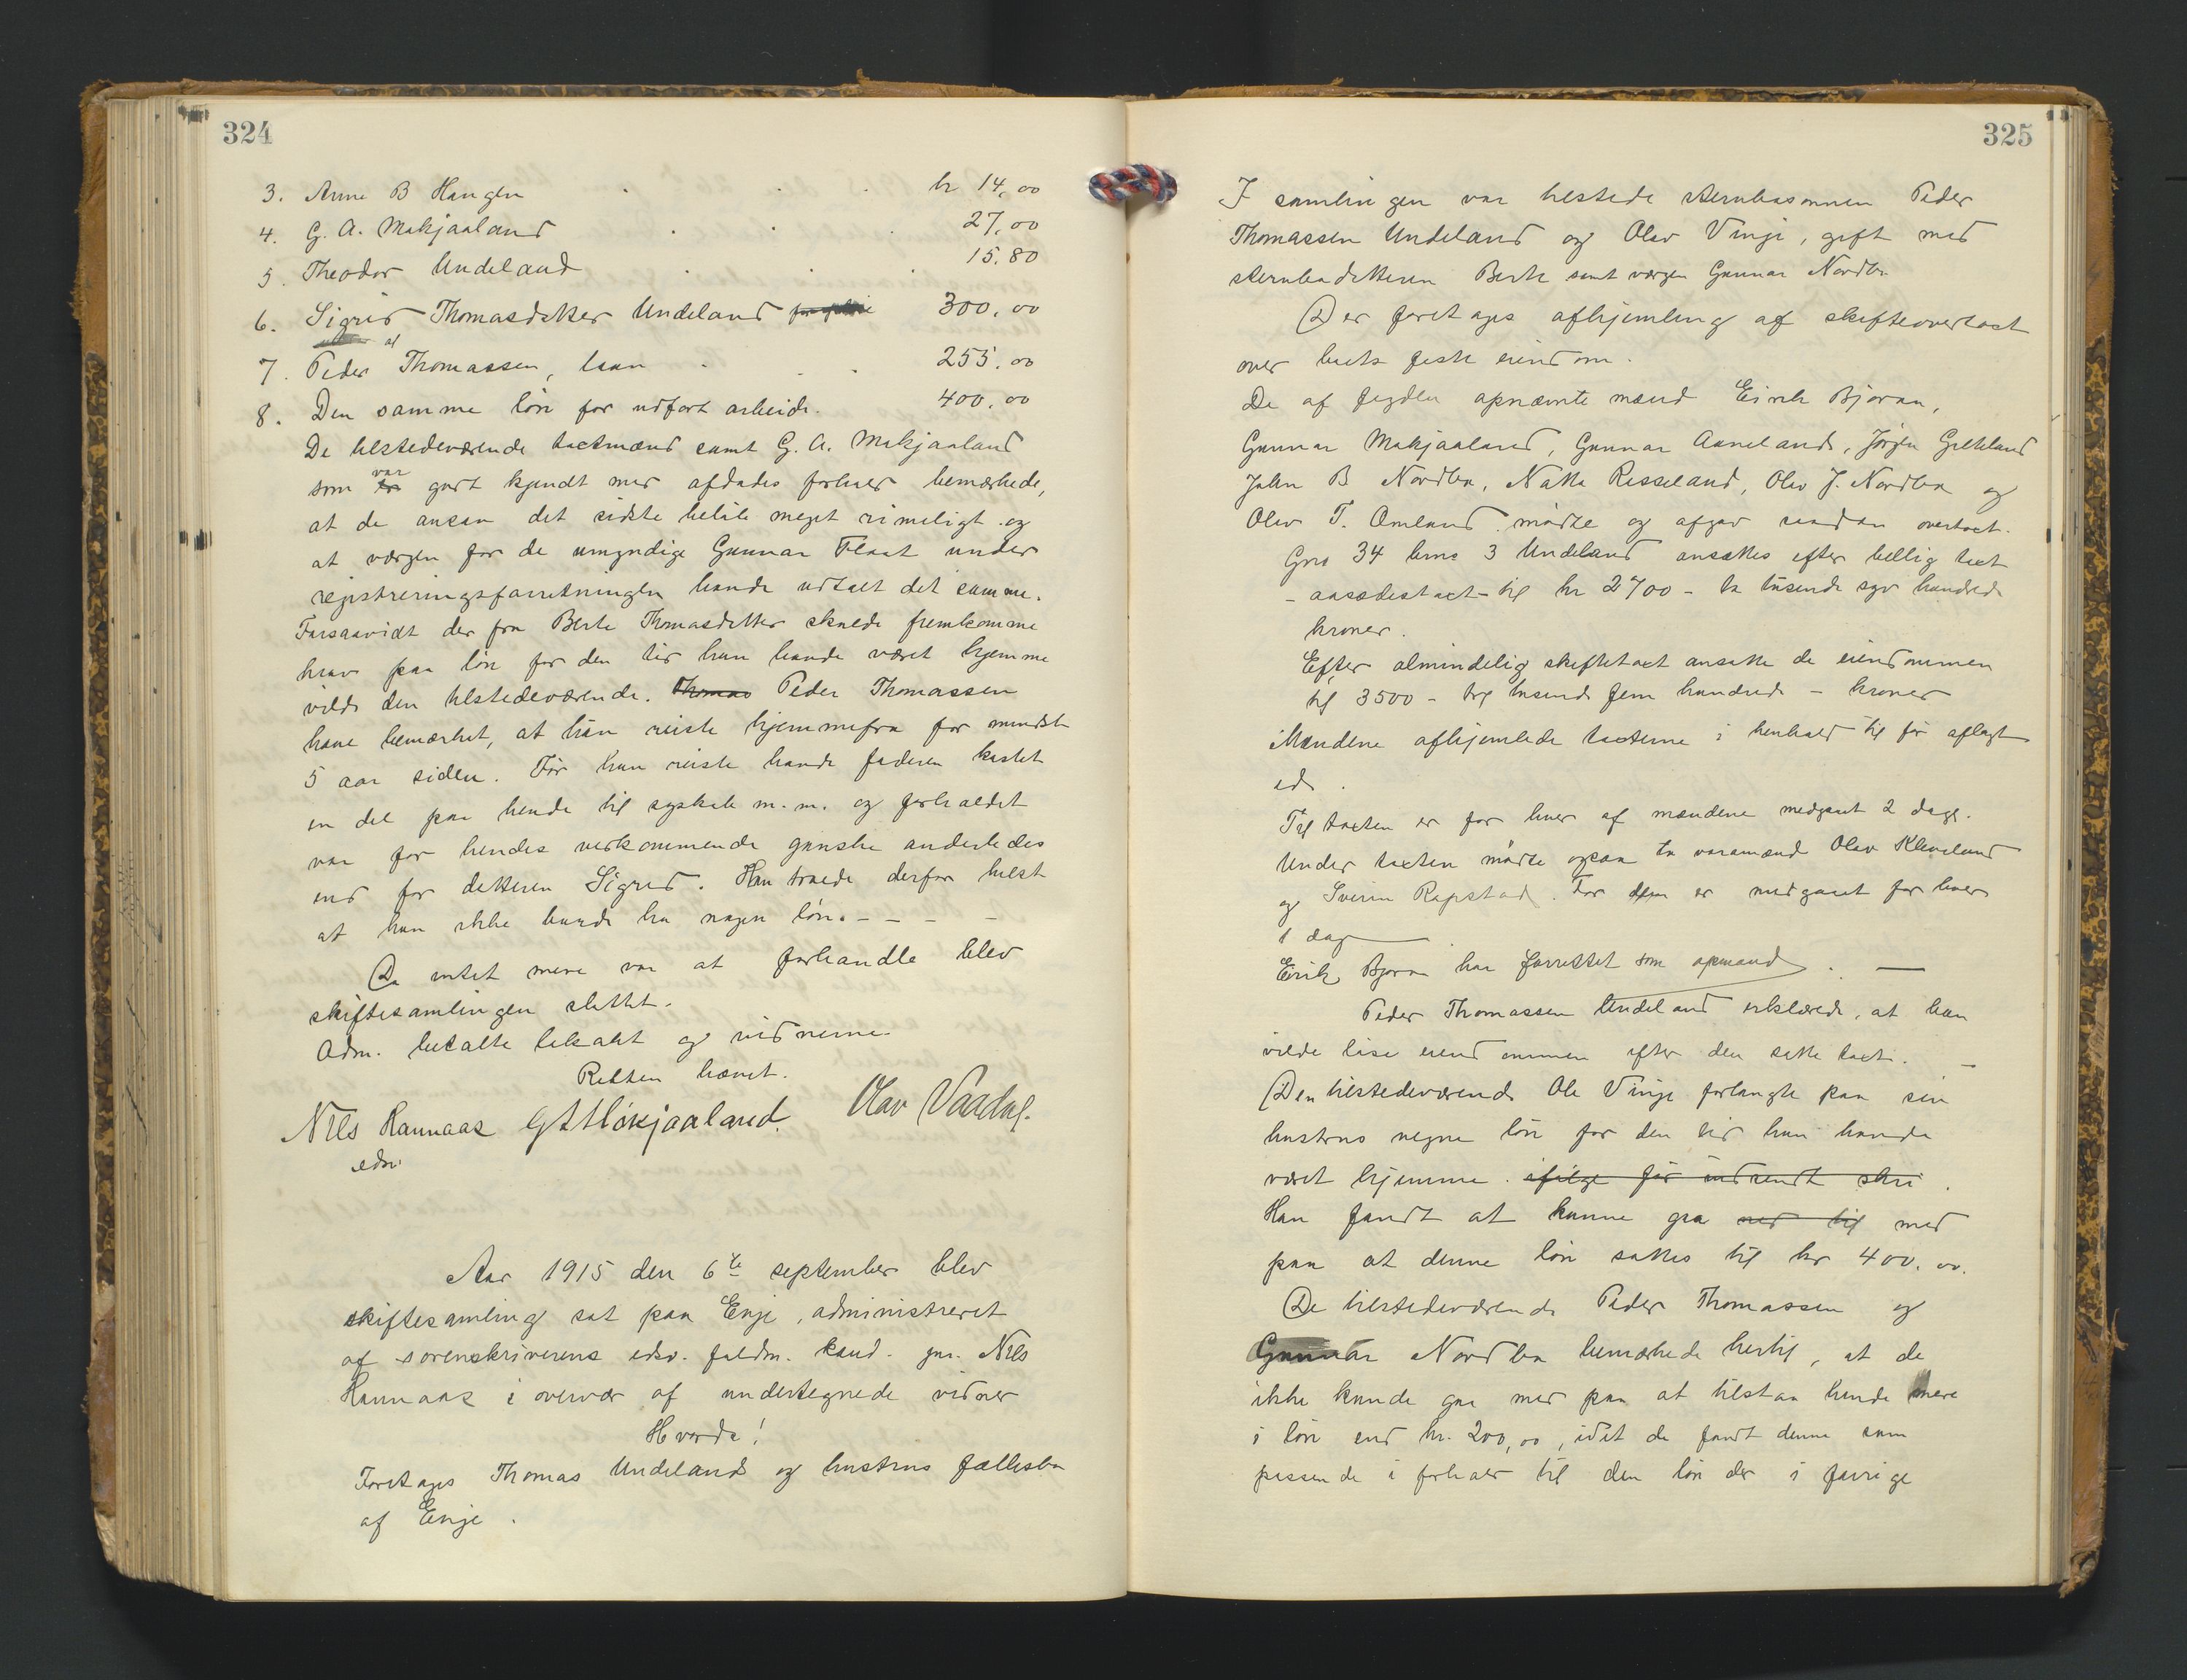 324
3. Anne B Haugen kr 14,00
4. G. A. Mokjaaland 27,00
5. Theodor Undeland 15,80
6. Sigrid Thomasdatter Undeland 300,00
7. Peder Thomassen, laan 255,00
8. Den samme løn for udført arbeide. 400,00
De tilstedeværende taxtmænd samt G. A. Mokjaaland
som var godt kjendt med afdødes forhold bemærkede,
at de ansaa det sidste beløb meget rimeligt og
at værgen for de umyndige Gunnar Flaat under
registreringsforretningen havde udtalt det samme.
Forsaavidt der fra Berte Thomasdatter skulde fremkomme
krav paa løn for den tid hun havde været hjemme
vilde den tilstedeværende. Thomas Peder Thomassen
have bemærket, at hun reiste hjemmefra for mindst
5 aar siden. Før hun reiste havde faderen kostet
en del paa hende til syskole m.m. og forholdet
var for hendes vedkommende ganske anderledes
end for datteren Sigrid. Han troede derfor helst
at hun ikke burde ha nogen løn. - - - -
Da intet mere var at forhandle blev
skiftesamlingen sluttet.
Adm. betalte lokalet og vidnerne.
Retten hævet.
Nils Hannaas G A Mokjaaland. Olav Vaadal.
edsv.
Aar 1915 den 6te september blev
skiftesamling sat paa Enje, administreret
af sorenskriverens edsv. fuldm. kand. jur. Nils
Hannaas i overvær af undertegnede vidner
Hvorda!
Foretages Thomas Undeland og hustrus fællesbo
af Eenje.
325
I samlingen var tilstede stervbosønnen Peder
Thomassen Undeland og Olav Vinje, gift med
stervbodatteren Berte samt værgen Gunnar Nordbø.
Der foretages afhjemling af skifteovertaxt
over boets faste eiendom.
De af fogden opnævnte mænd Eirik Bjoraa,
Gunnar Mokjaaland, Gunnar Aaneland, Jørgen
John B Nordbø, Natle Risseland, Olav J. Nordbø og
Olav T. Omland mødte og afgav saadan overtaxt.
Gno 34 brno 3 Undeland ansattes efter billig taxt
- aasædestaxt - til kr 2700 - to tusende syv hundrede
kroner.
Efter almindelig skiftetaxt ansatte de eiendommen
til 3500 - tre tusende fem hundrede - kroner
Mændene afhjemlede taxterne i henhold til før aflagt
ed.
Til taxten er for hver af mændene medgaat 2 dage.
Under taxten mødte ogsaa to varamænd Olav Kleveland
og Sveinn Rapstad. For dem er medgaaet for hver
1 dag
Eirik Bjoraa har forrettet som opmand. —
Peder Thomassen Undeland erklærede, at han
vilde løse eiendommen efter den satte taxt. -
Den tilstedeværende Ole Vinje forlangte paa sin
hustrus vegne løn for den tid hun havde
været hjemme. ifølge før indsendt skri.
Han fandt at kunne gaa ned til med
paa at denne løn sattes til kr 400.00.
De tilstedeværende Peder Thomassen og
Gunnar Nordbø bemærkede hertil, at de
ikke kunde gaa med paa at tilstaa hende mere
i løn end kr. 200,00, idet de fandt denne som
passende i forhold til den løn der i forrige